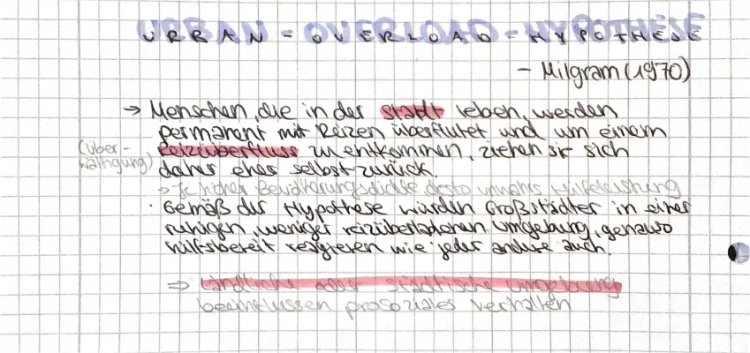 URBAN - OVERLOAD - HYPOTHESE
- Milgram (1970)
→ Menschen, die in der Stadt leben, werden
permanent mit Reizen überflutet und um einem
(Über- Reizüberfluss zu entkommen, ziehen sie sich
wältigung) daher eher selbst zurück.
→ Je höher Bevölkerungsdichte desto unwahrs. Hilfeleistung
· Gemäß der Hypothese würden Großstädter in einer
ruhigen, weniger reizüberladenen Umgebung, genauso
hilfsbereit reagieren wie jeder andere auch.
⇒ Ländliche oder städtische Umgebung
beeinflussen prosoziales Verhalten